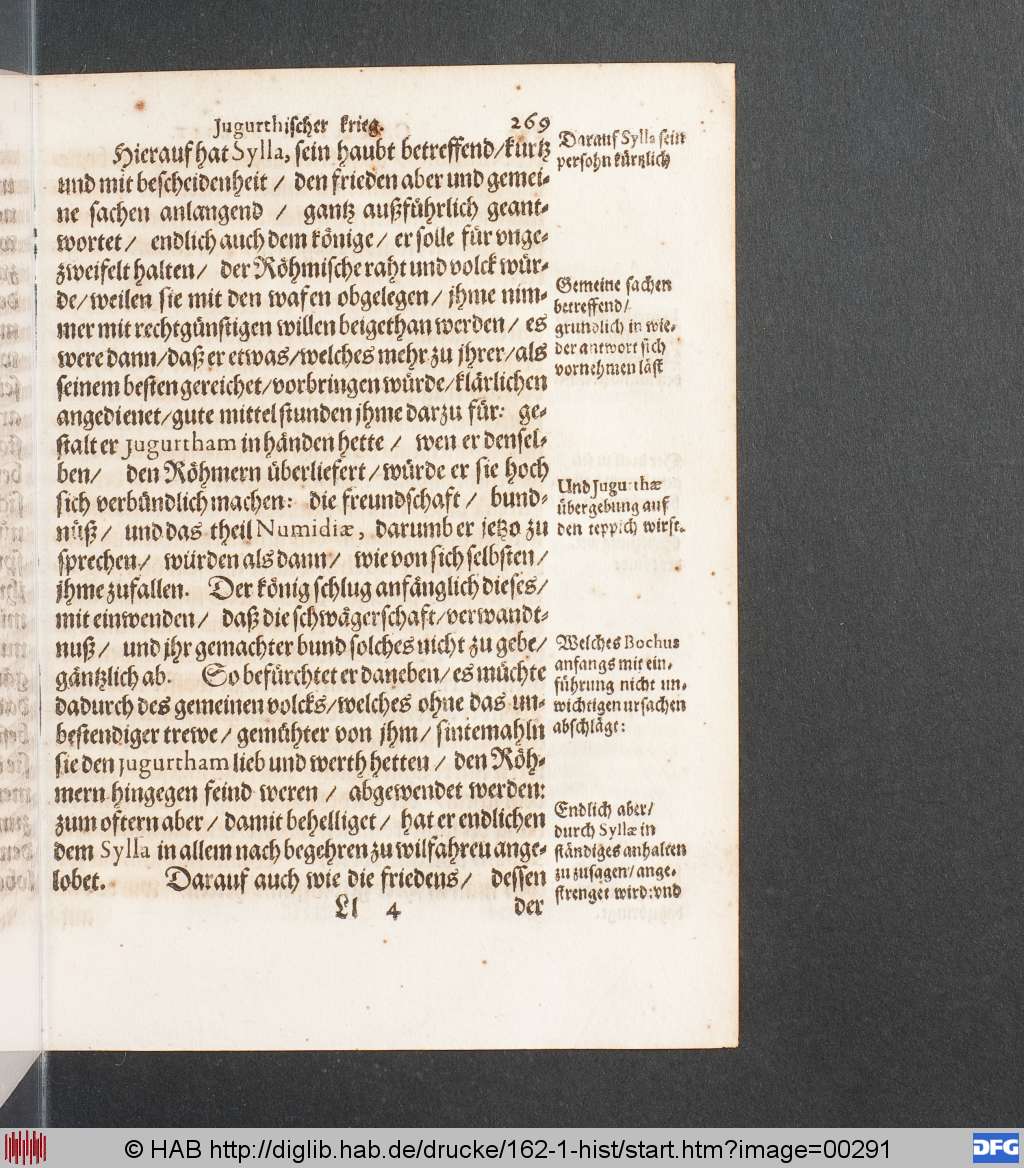 Jugurthischer krieg. 269
Hierauf hat Sylla, sein haubt betreffend/kürtz
und mit bescheidenheit / den frieden aber und gemei-
ne sachen anlangend / gantz außführlich geant-
wortet/ endlich auch dem könige/ er solle für vnge-
zweifelt halten/ der Röhmische raht und volck wür-
de/weilen sie mit den wafen obgelegen/ jhme nim-
mer mit rechtgünstigen willen beigethan werden/ es
were dann/daß er etwas/welches mehr zu jhrer/als
seinem besten gereichet/vorbringen würde/klärlichen
angedienet/gute mittel stunden jhme darzu für: ge-
stalt er Jugurtham in händen hette/ wen er densel-
ben/ den Röhmern überliefert/würde er sie hoch
sich verbündlich machen: die freundschaft/ bund-
nüß/ und das theil Numidiæ, darumb er jetzo zu
sprechen/ würden als dann/ wie von sich selbsten/
jhme zufallen. Der könig schlug anfänglich dieses/
mit einwenden/ daß die schwägerschaft/verwandt-
nuß/ und jhr gemachter bund solches nicht zu gebe/
gäntzlich ab. So befürchtet er daneben/ es müchte
dadurch des gemeinen volcks/welches ohne das un-
bestendiger trewe/ gemühter von jhm/ sintemahln
sie den Jugurtham lieb und werth hetten/ den Röh-
mern hingegen feind weren/ abgewendet werden:
zum oftern aber/ damit behelliget/ hat er endlichen
dem Sylla in allem nach begehren zu wilfahreu ange-
lobet. Darauf auch wie die friedens/ dessen
Ll 4 der
Darauf Sylla sein
persohn kürtzlich
Gemeine sachen
betreffend/
grundlich in wie-
der antwort sich
vornehmen läst
Und Jugurthæ
übergebung auf
den teppich wirft.
Welches Bochus
anfangs mit ein-
führung nicht un-
wichtigen ursachen
abschlägt:
Endlich aber/
durch Syllæ in
ständiges anhalten
zu zusagen/ange-
strenget wird:vnd
© HAB http://diglib.hab.de/drucke/162-1-hist/start.htm?image=00291
DFG